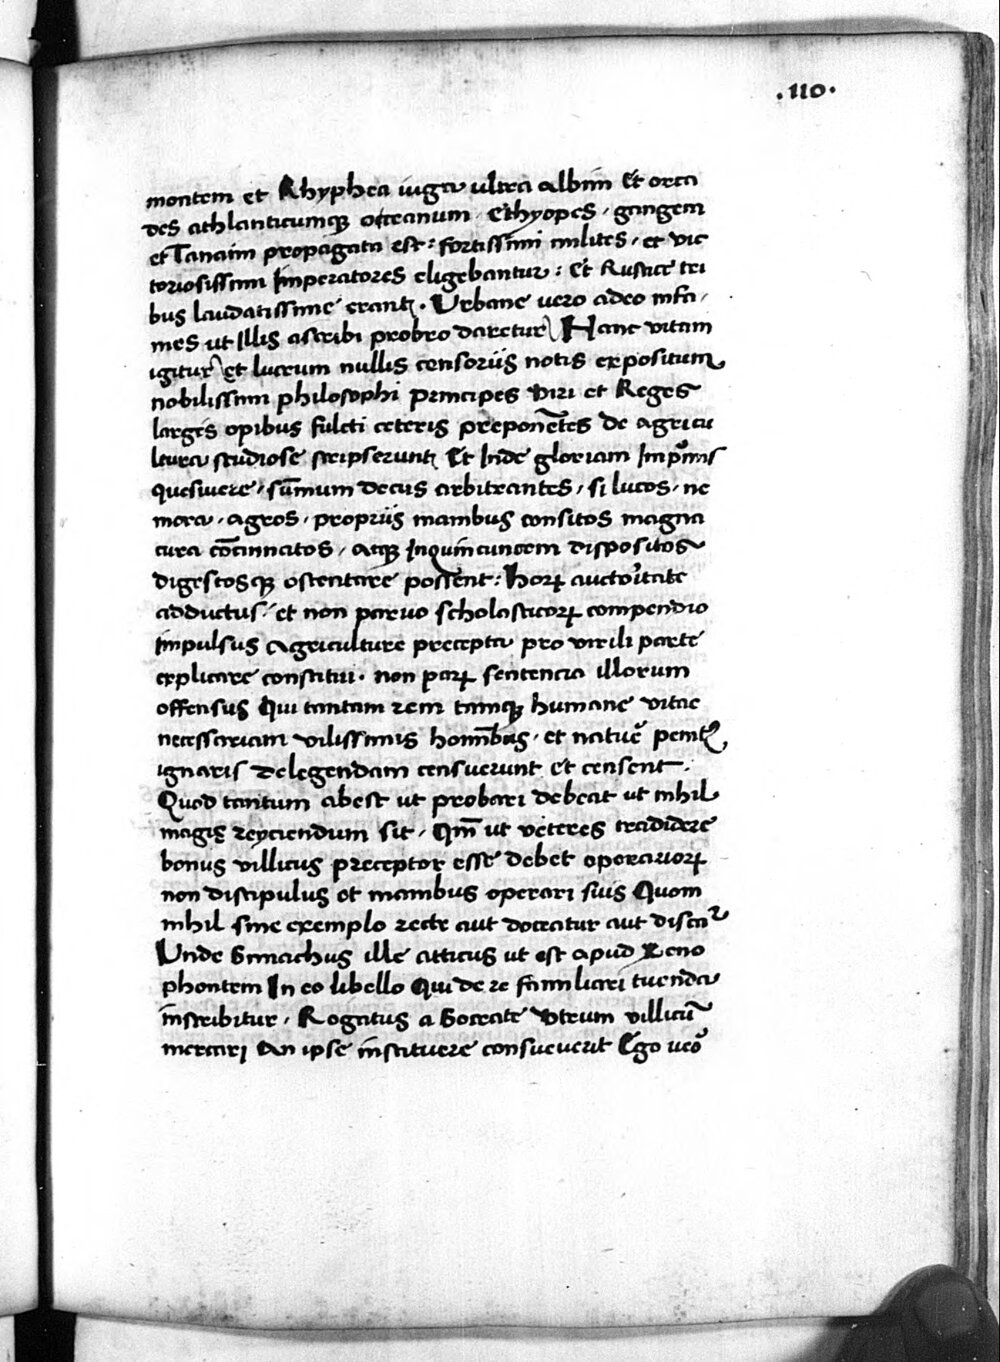 .110.
montem et Rhyphea iuga ultra albim Et orca
des athlanticumqꝫ occeanum. Ethyopes. gangem
et Tanaim propagata est: fortissimi milites, et vic
toriosissimi Imperatores eligebantur: Et Rusticę tri
bus laudatissime erant. Urbane uero adeo infa,
mes ut Illis ascribi probro daretur Hanc vitam
igitur et lucrum nullis censoriis notis expositum
nobilissimi philosophi Principes viri et Reges
larges opibus fulcti ceteris preponētes de agricu
ltura studiose scripserunt Et Inde gloriam Imp̄mis
quesiuere, sūmum decus arbitrantes, si lucos, ne
mora, agros, propriis manibus consitos magna
cura cōcinnatos, atqꝫ Inquincuncem dispositos
digestosqꝫ ostentare possent: horꝝ auctoritate
adductus, et non paruo scholasticorꝝ compendio
impulsus Agriculture precepta pro virili parte
explicare constitui. non parꝝ sentencia illorum
offensus Qui tantam rem tamqꝫ humane vitae
necessariam vilissimis hominibus, et naturę penitꝰ
ignaris delegendam censuerunt et censent.
Quod tantum abest ut probari debeat ut nihil
magis reyciendum sit, Qm̄ ut veteres tradidere
bonus villicus preceptor esse debet operariorꝝ
non discipulus et manibus operari suis Quom
nihil sine exemplo recte aut doceatur aut discat᷑
Unde Simachus ille atticus ut est apud Xeno
phontem In eo libello Qui de re familiari tuenda
inscribitur, Rogatus a Socrate Utrum villicū
mercari An ipse instituere consueuerit Ego ueo᷑